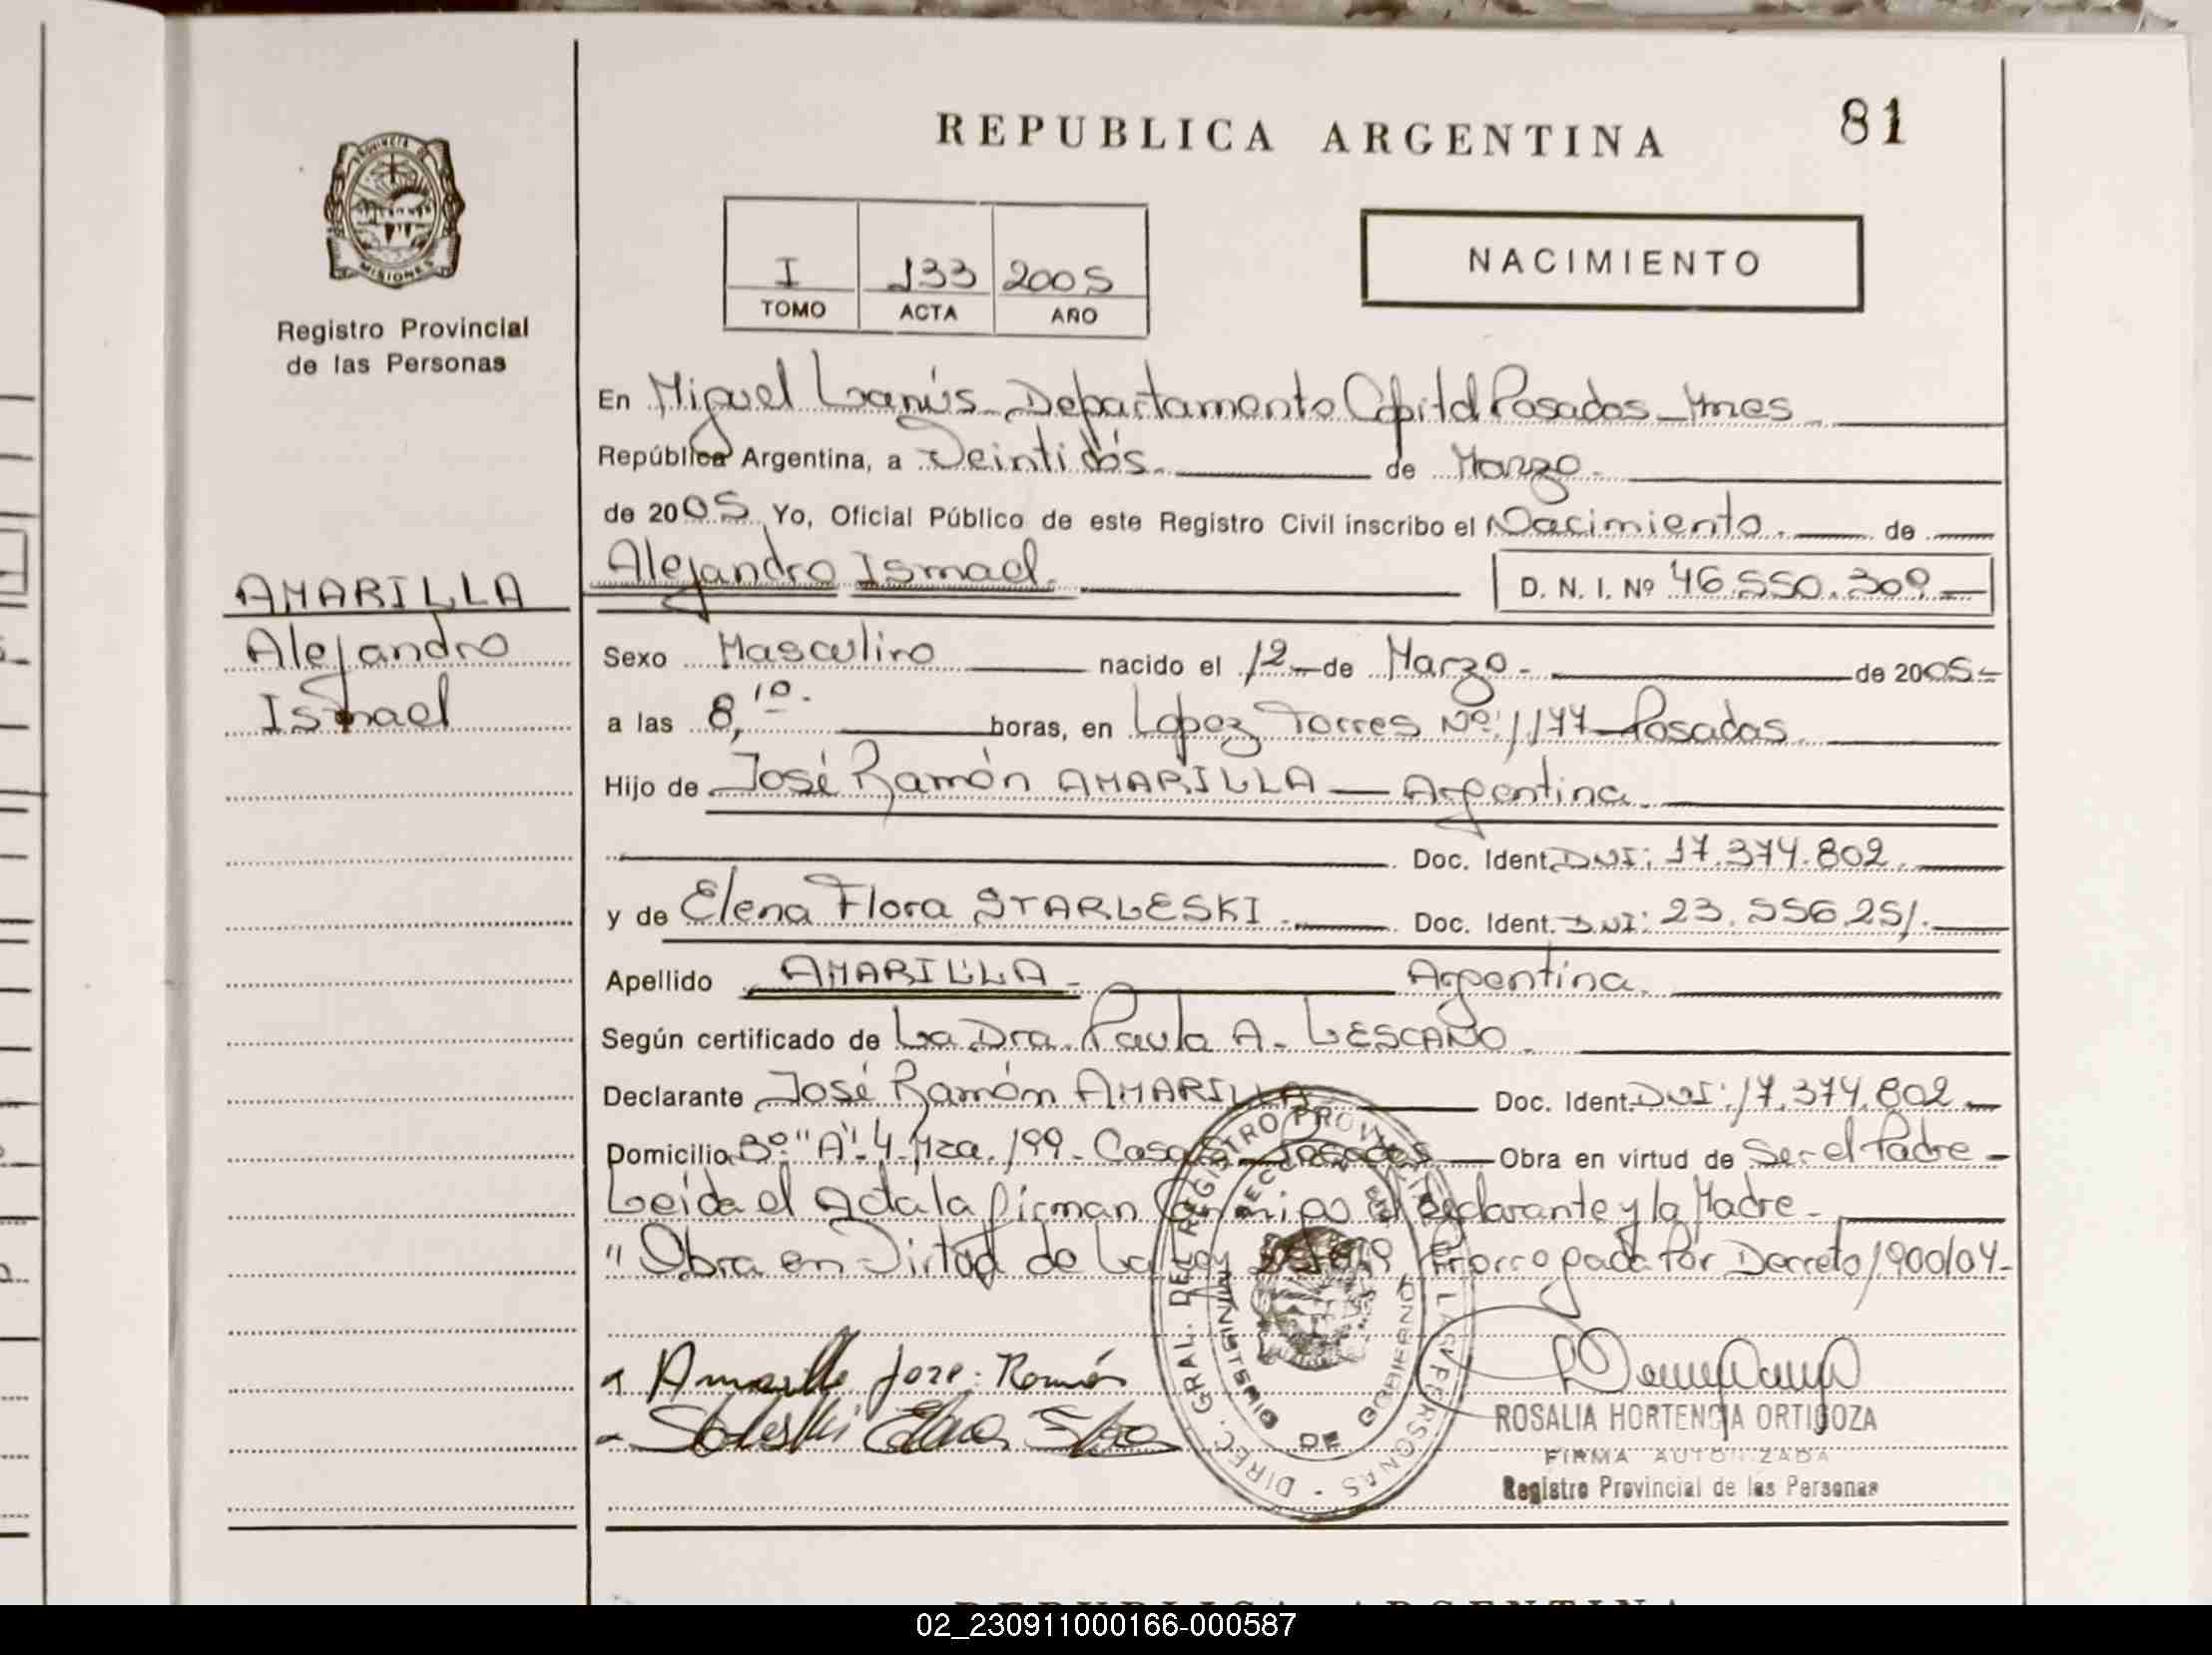 REPUBLICA ARGENTINA 81
PROVINCIA DE
MISIONES
Registro Provincial
de las Personas
I 133 2005
TOMO ACTA AÑO
NACIMIENTO
En Miguel Lanús - Departamento Capital Posadas - Mnes
República Argentina, a Veintidós de Marzo.
de 2005 Yo, Oficial Público de este Registro Civil inscribo el Nacimiento. de
AMARILLA
Alejandro
Ismael
Alejandro Ismael. D. N. I. Nº 46.550.309.-
Sexo Masculino nacido el 12 de Marzo - de 2005-
a las 8,10. horas, en Lopez Torres Nº: 1177 - Posadas.
Hijo de José Ramón AMARILLA - Argentina.
Doc. Ident. DNI: 17.374.802.
y de Elena Flora STARLESKI. Doc. Ident. DNI: 23.556.251.
Apellido AMARILLA - Argentina.
Según certificado de La Dra. Paula A. LESCANO.
Declarante José Ramón AMARILLA Doc. Ident. DNI: 17.374.802
Domicilio Bº "A"-4-Mza. 199- Casa Posadas Obra en virtud de Ser el Padre -
Leída el acta la firman Conmigo el declarante y la Madre -
"Obra en Virtud de La Ley Prorrogada Por Decreto 1900/04-
Amarilla Joze Ramón
DIREC. GRAL. DEL REGISTRO PROVINCIAL LAS PERSONAS
MINISTERIO DE GOBIERNO
ROSALIA HORTENCIA ORTIGOZA
FIRMA AUTORIZADA
Registro Provincial de las Personas
REPUBLICA ARGENTINA
02_230911000166-000587